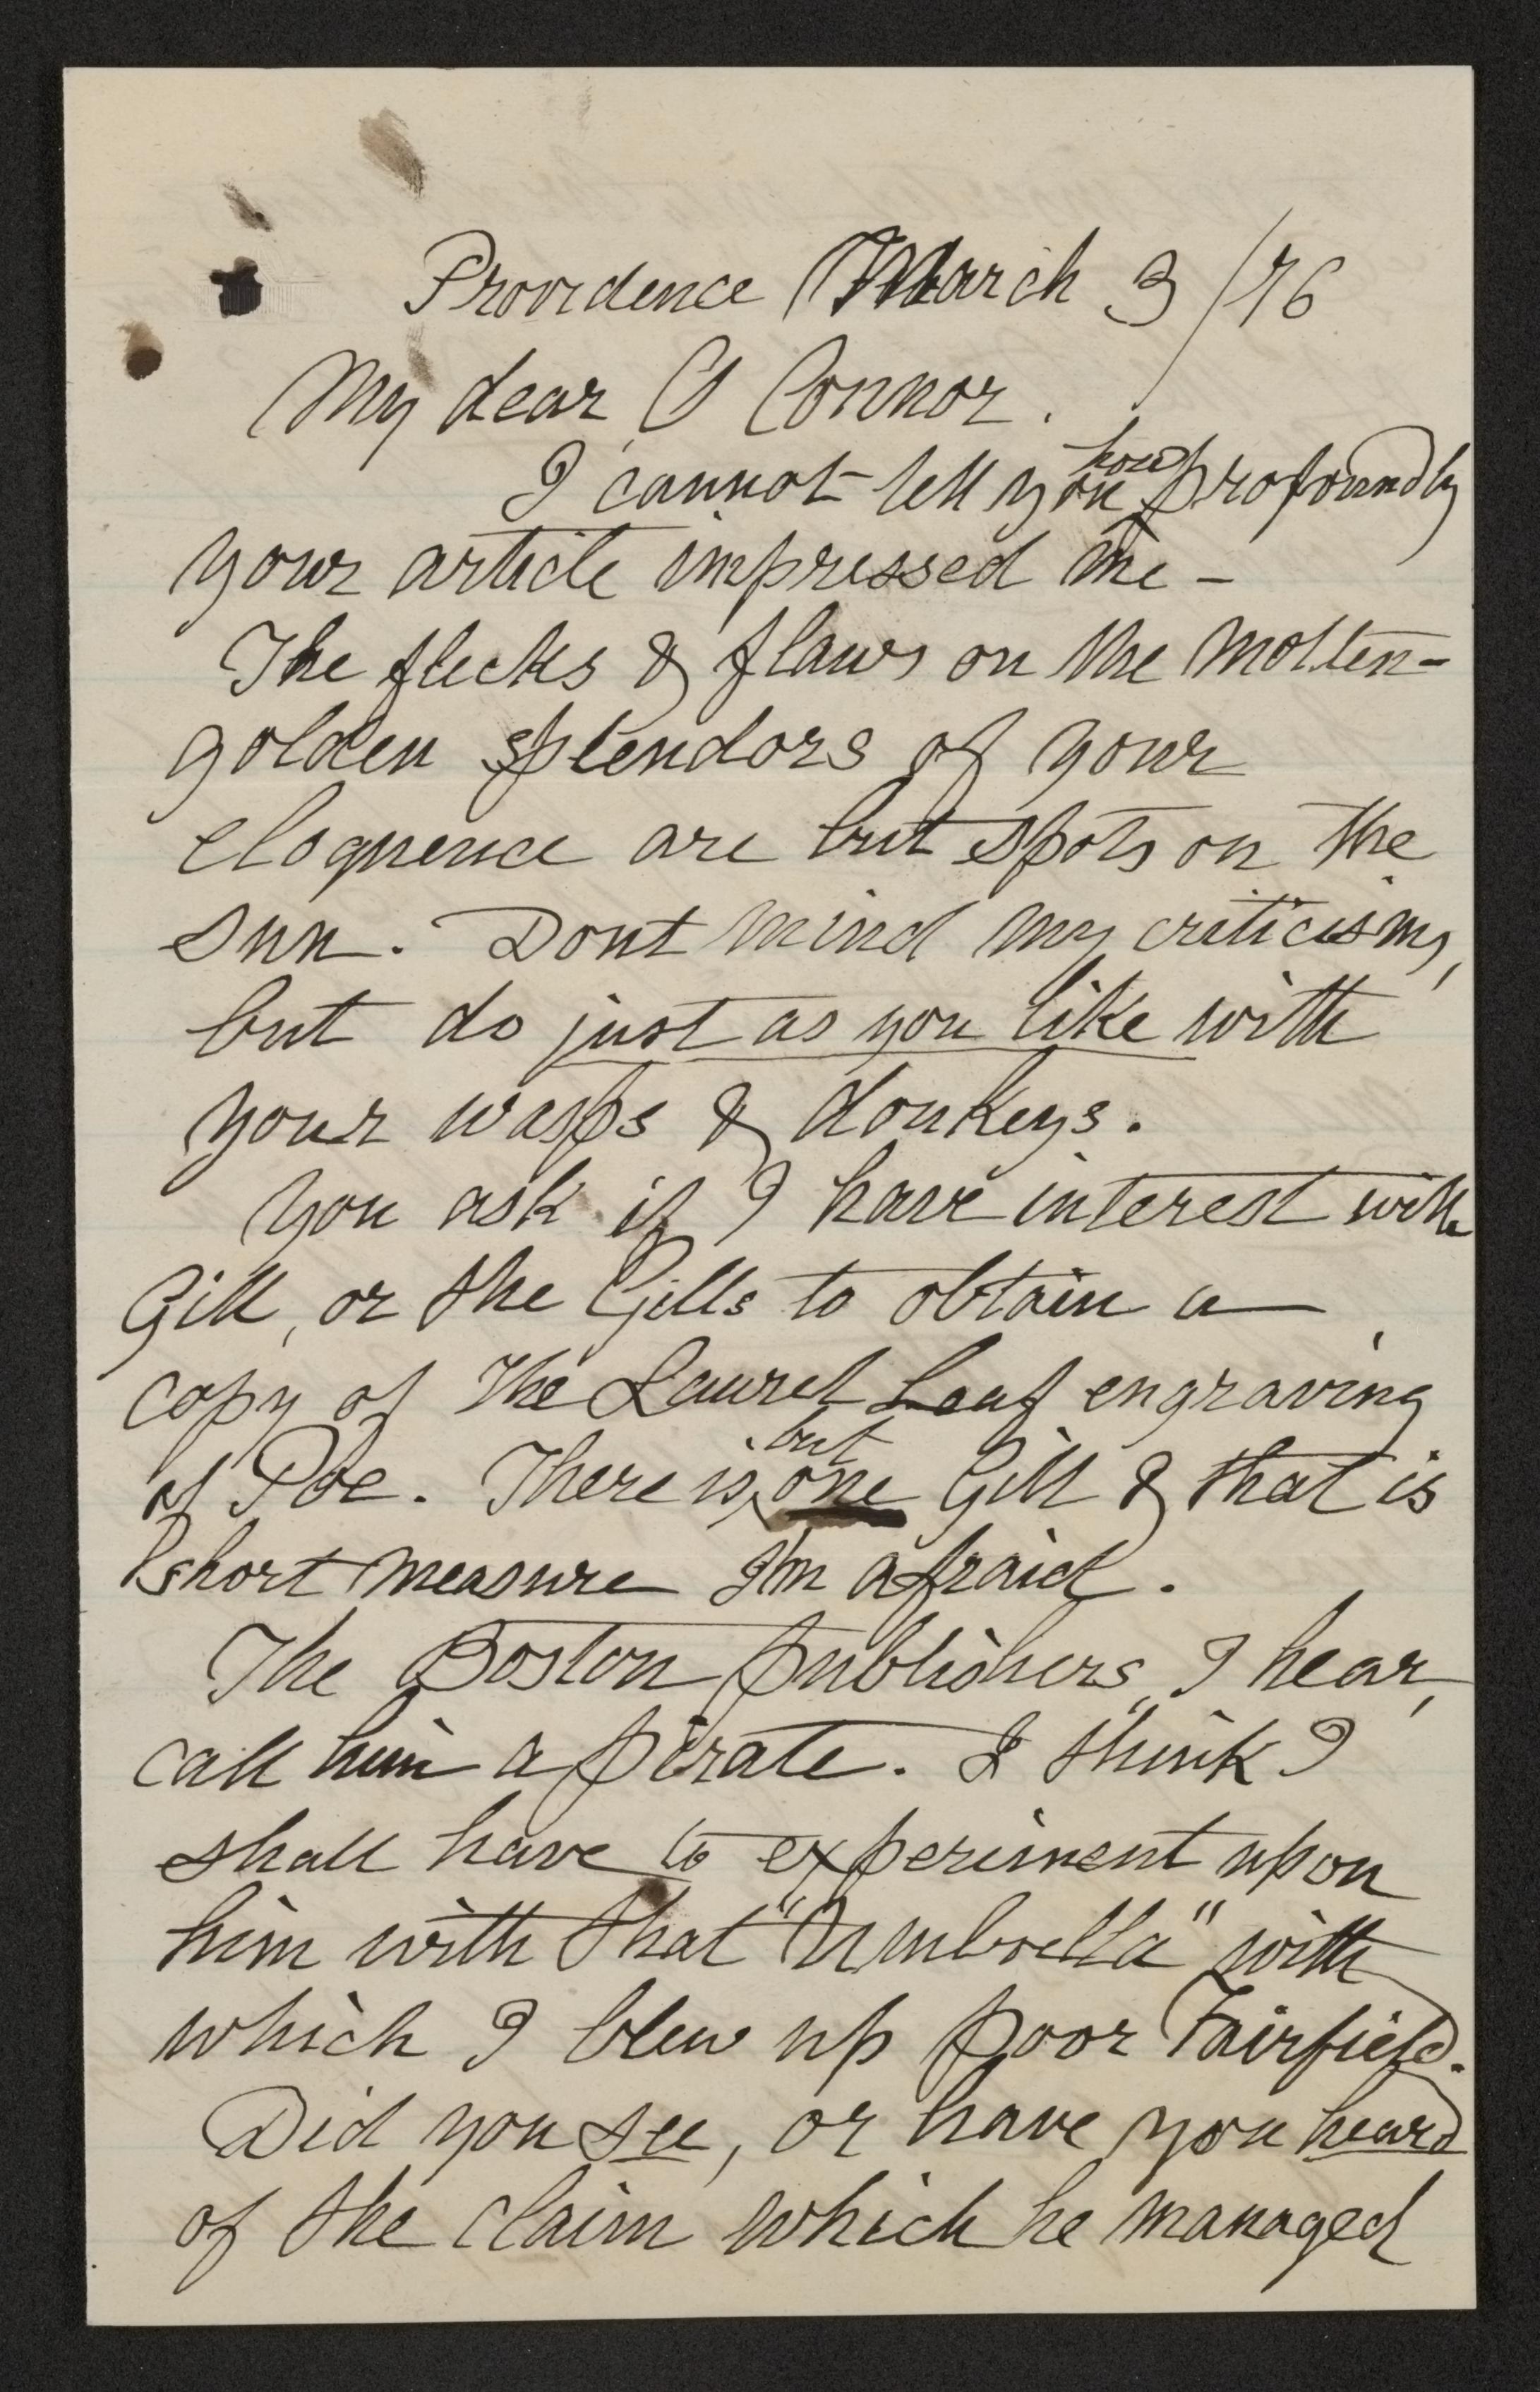 Providence March 3/76
My dear O'Connor.
I cannot tell you how profoundly
your article impressed me -
The flecks & flaws on the molten-
golden splendors of your
eloquence are but spots on the
sun. Dont mind my criticisms,
but do just as you like with
your wasps & donkeys.
You ask if I have interest with
Gill, or the Gills to obtain a
copy of The Laurel Leaf engraving
of Poe. There is but one Gill & that is
short measure I'm afraid.
The Boston publishers, I hear,
call him a pirate. I think I
shall have to experiment upon
him with that "Umbrella" with
which I blew up poor Fairfield.
Did you see, or have you heard
of the claim which he managed